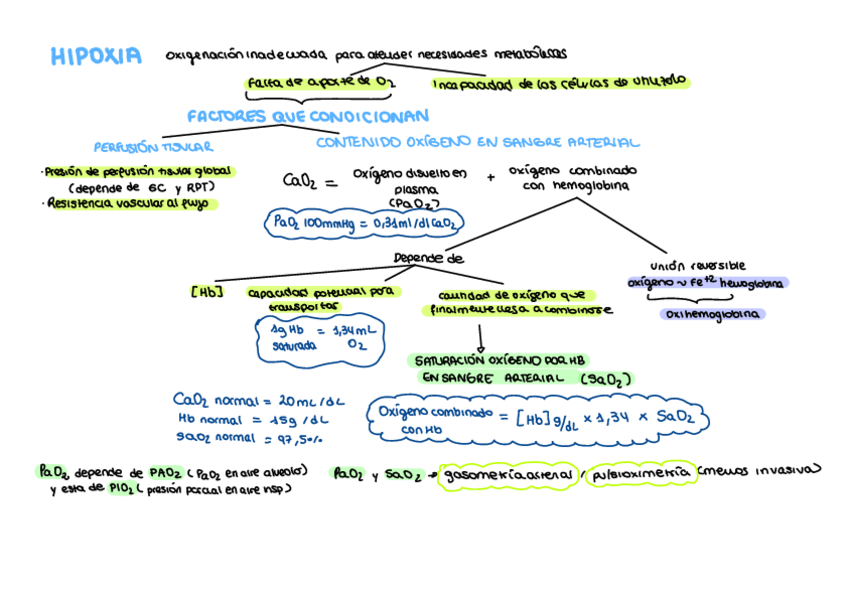 HIPOXIA oxigenación inadecuada para atender necesidades metabólicas
Falta de aporte de O2 Incapacidad de las células de utilizarlo
FACTORES QUE CONDICIONAN
PERFUSIÓN TISULAR CONTENIDO OXÍGENO EN SANGRE ARTERIAL
· Presión de perfusión tisular global
(depende de GC y RPT)
· Resistencia vascular al flujo
CaO2 = Oxígeno disuelto en + oxígeno combinado
plasma con hemoglobina
(PaO2)
PaO2 100mmHg = 0,31ml/dl CaO2
Depende de
unión reversible
oxígeno ~ Fe+2 hemoglobina
oxihemoglobina
[Hb] capacidad potencial para
transportar
cantidad de oxígeno que
finalmente llega a combinarse
1g Hb = 1,34mL
saturada O2
SATURACIÓN OXÍGENO POR HB
EN SANGRE ARTERIAL (SaO2)
CaO2 normal = 20mL/dL
Hb normal = 15g/dL
SaO2 normal = 97,5%
Oxígeno combinado = [Hb]g/dL x 1,34 x SaO2
con Hb
PaO2 depende de PAO2 (PaO2 en aire alveolo)
y esta de PIO2 (presión parcial en aire insp)
PaO2 y SaO2 → gasometría arterial / pulsioximetría (menos invasiva)